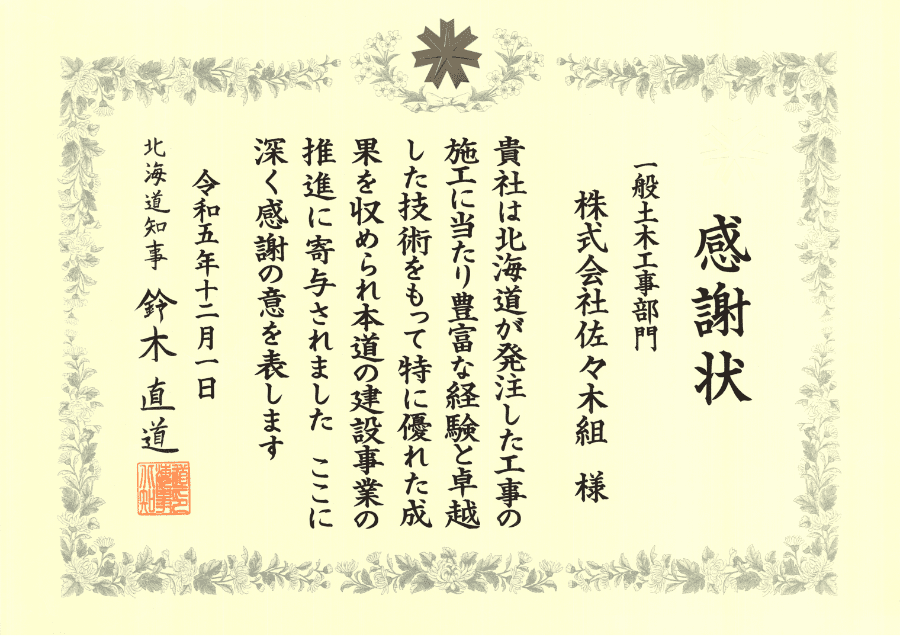 感謝状
一般土木工事部門
株式会社佐々木組 様
貴社は北海道が発注した工事の
施工に当たり豊富な経験と卓越
した技術をもって特に優れた成
果を収められ本道の建設事業の
推進に寄与されました ここに
深く感謝の意を表します
令和五年十二月一日
北海道知事 鈴木直道